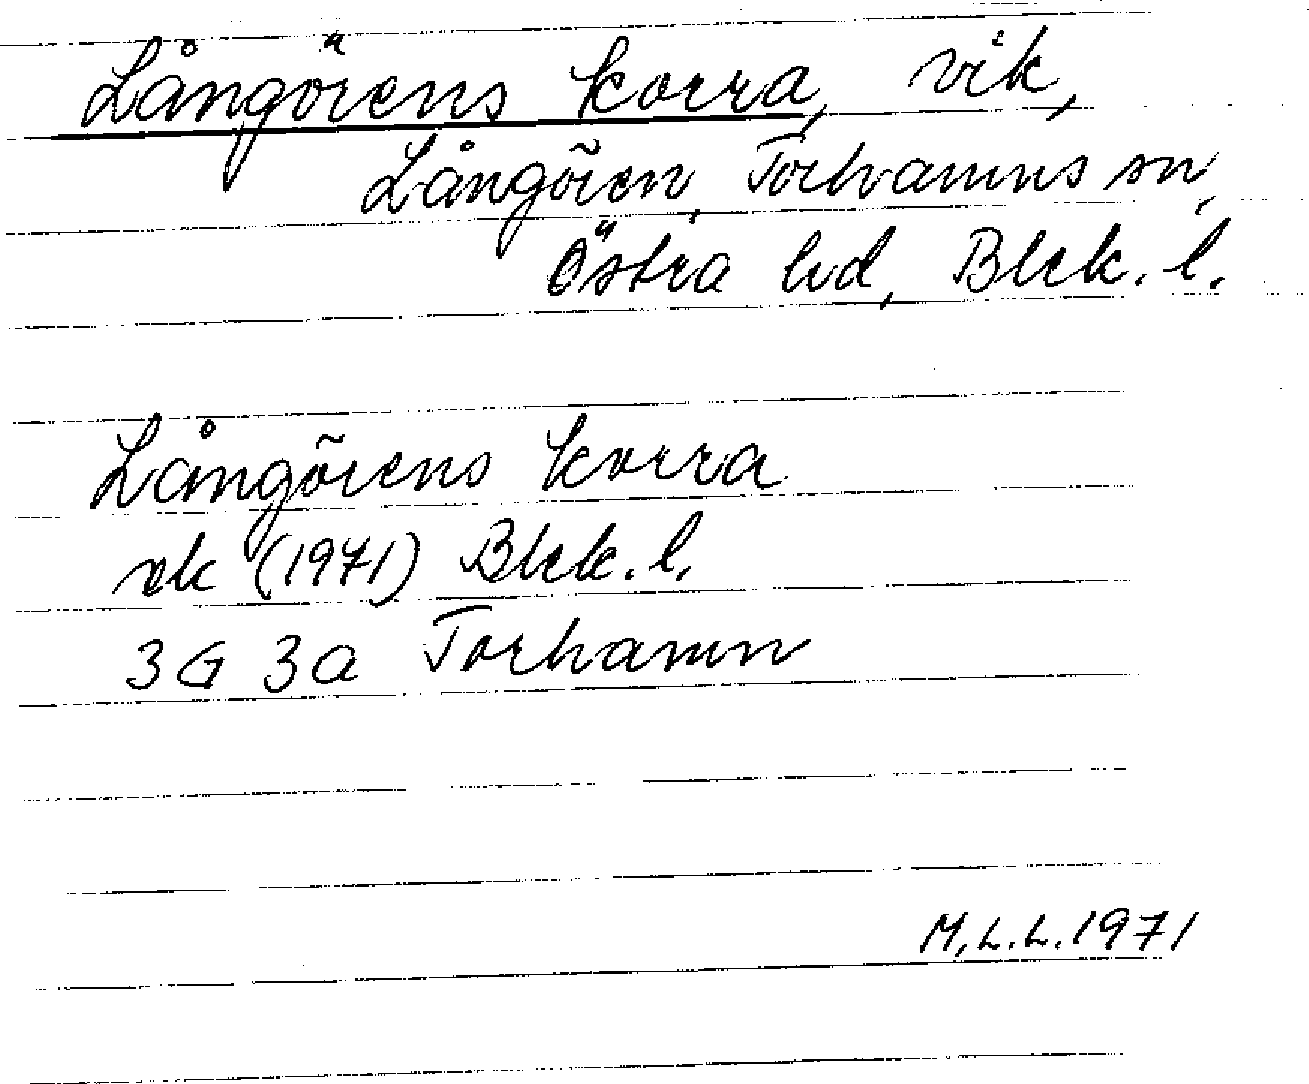 Långörens korra, vik,
Långören, Torhamns sn,
Östra hd, Blek. l.
Långörens korra
ek (1971) Blek. l.
3G 3a Torhamn
M.L.L. 1971